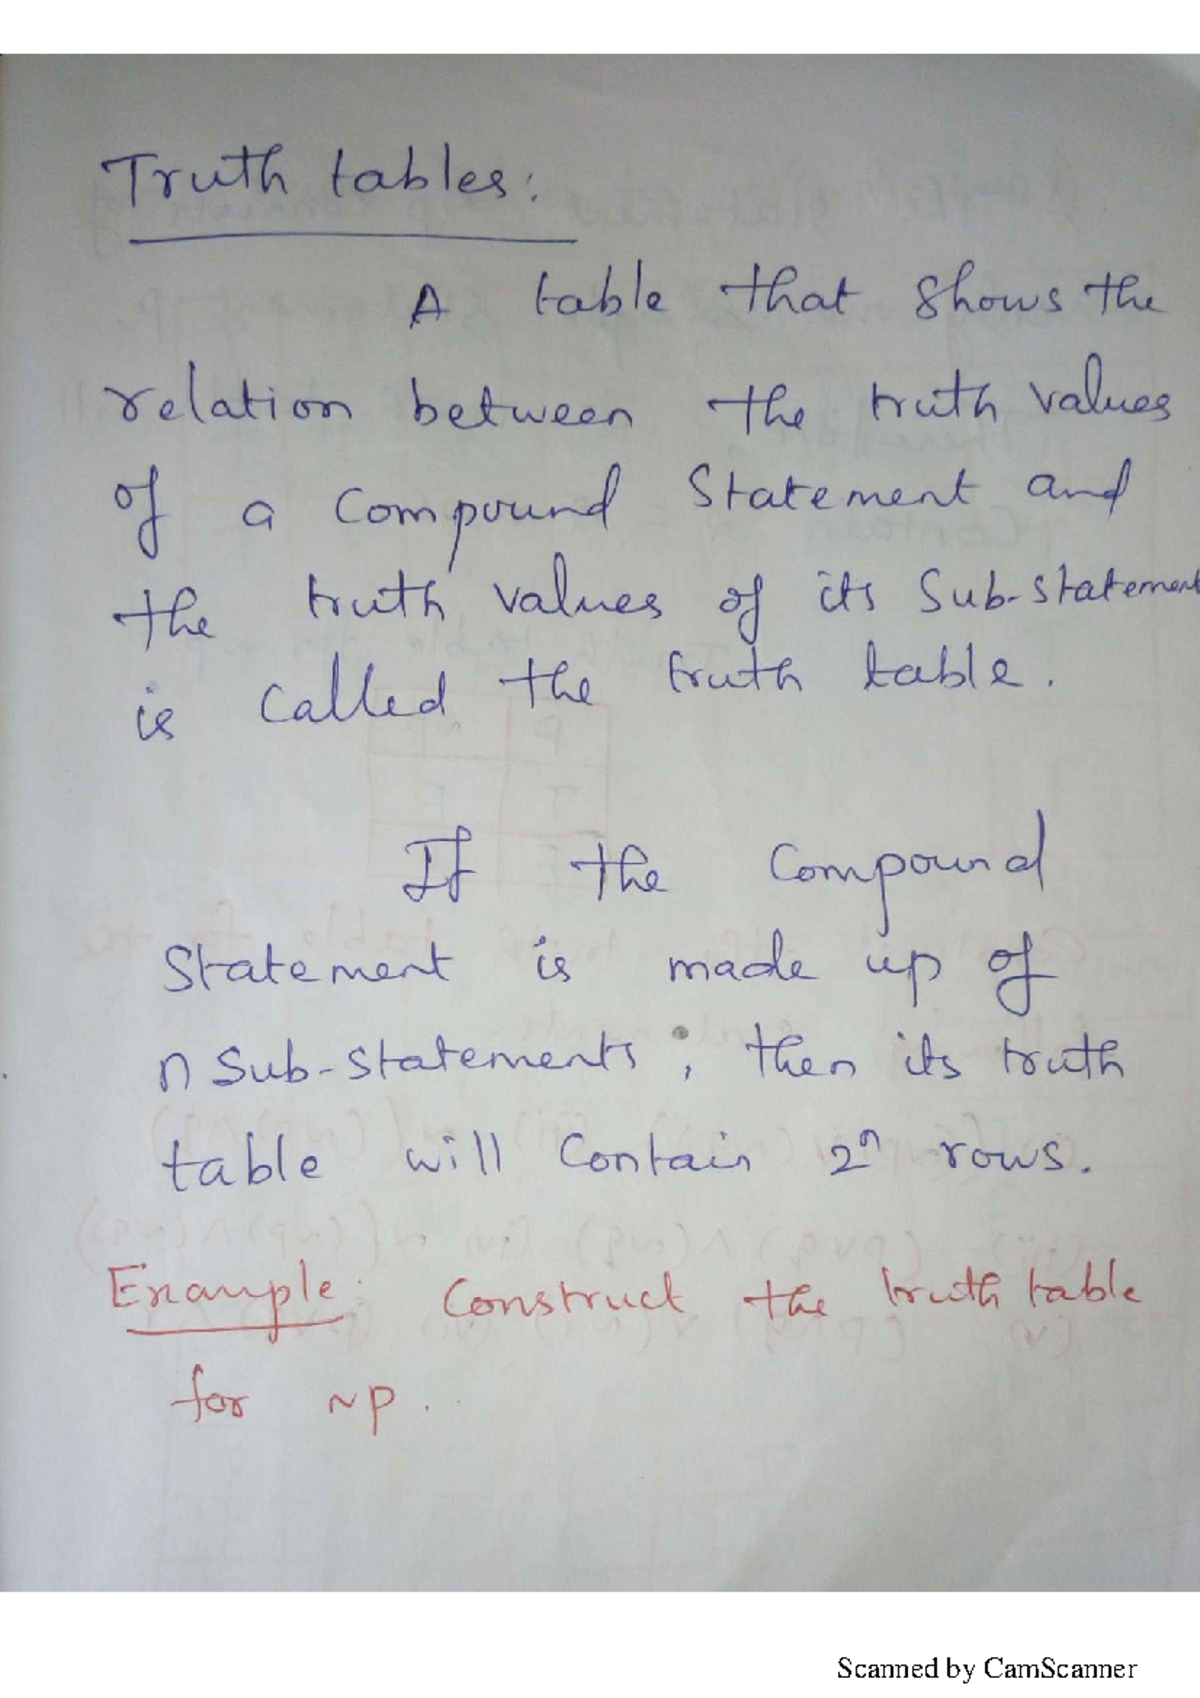 Truth tables:
A table that shows the
relation between the truth values
of a compound statement and
the truth values of its Sub-statement
is called the truth table.
If the compound
Statement is made up of
n Sub-statements, then its truth
table will contain 2ⁿ rows.
Example: Construct the truth table
for ~p.
Scanned by CamScanner